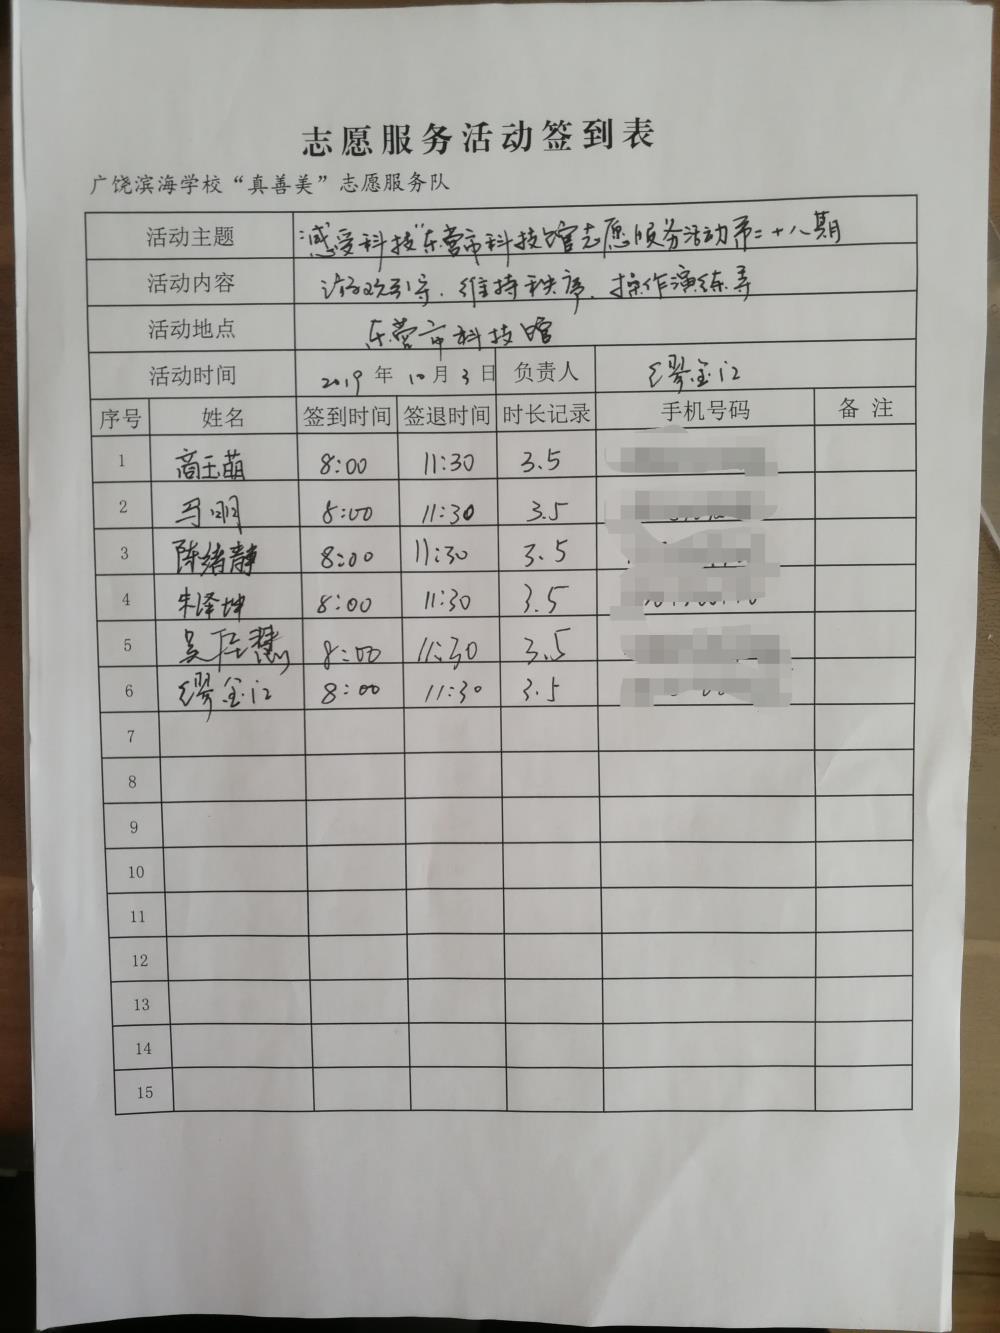 志愿服务活动签到表
广饶滨海学校“真善美”志愿服务队
活动主题 “感受科技”东营市科技馆志愿服务活动第二十八期
活动内容 游戏引导、维持秩序、操作演练等
活动地点 东营市科技馆
活动时间 2019年10月3日 负责人 缪金江
序号 姓名 签到时间 签退时间 时长记录 手机号码 备注
1 高玉萌 8:00 11:30 3.5
2 马明 8:00 11:30 3.5
3 陈绪静 8:00 11:30 3.5
4 朱泽坤 8:00 11:30 3.5
5 吴 慧 8:00 11:30 3.5
6 缪金江 8:00 11:30 3.5
7
8
9
10
11
12
13
14
15